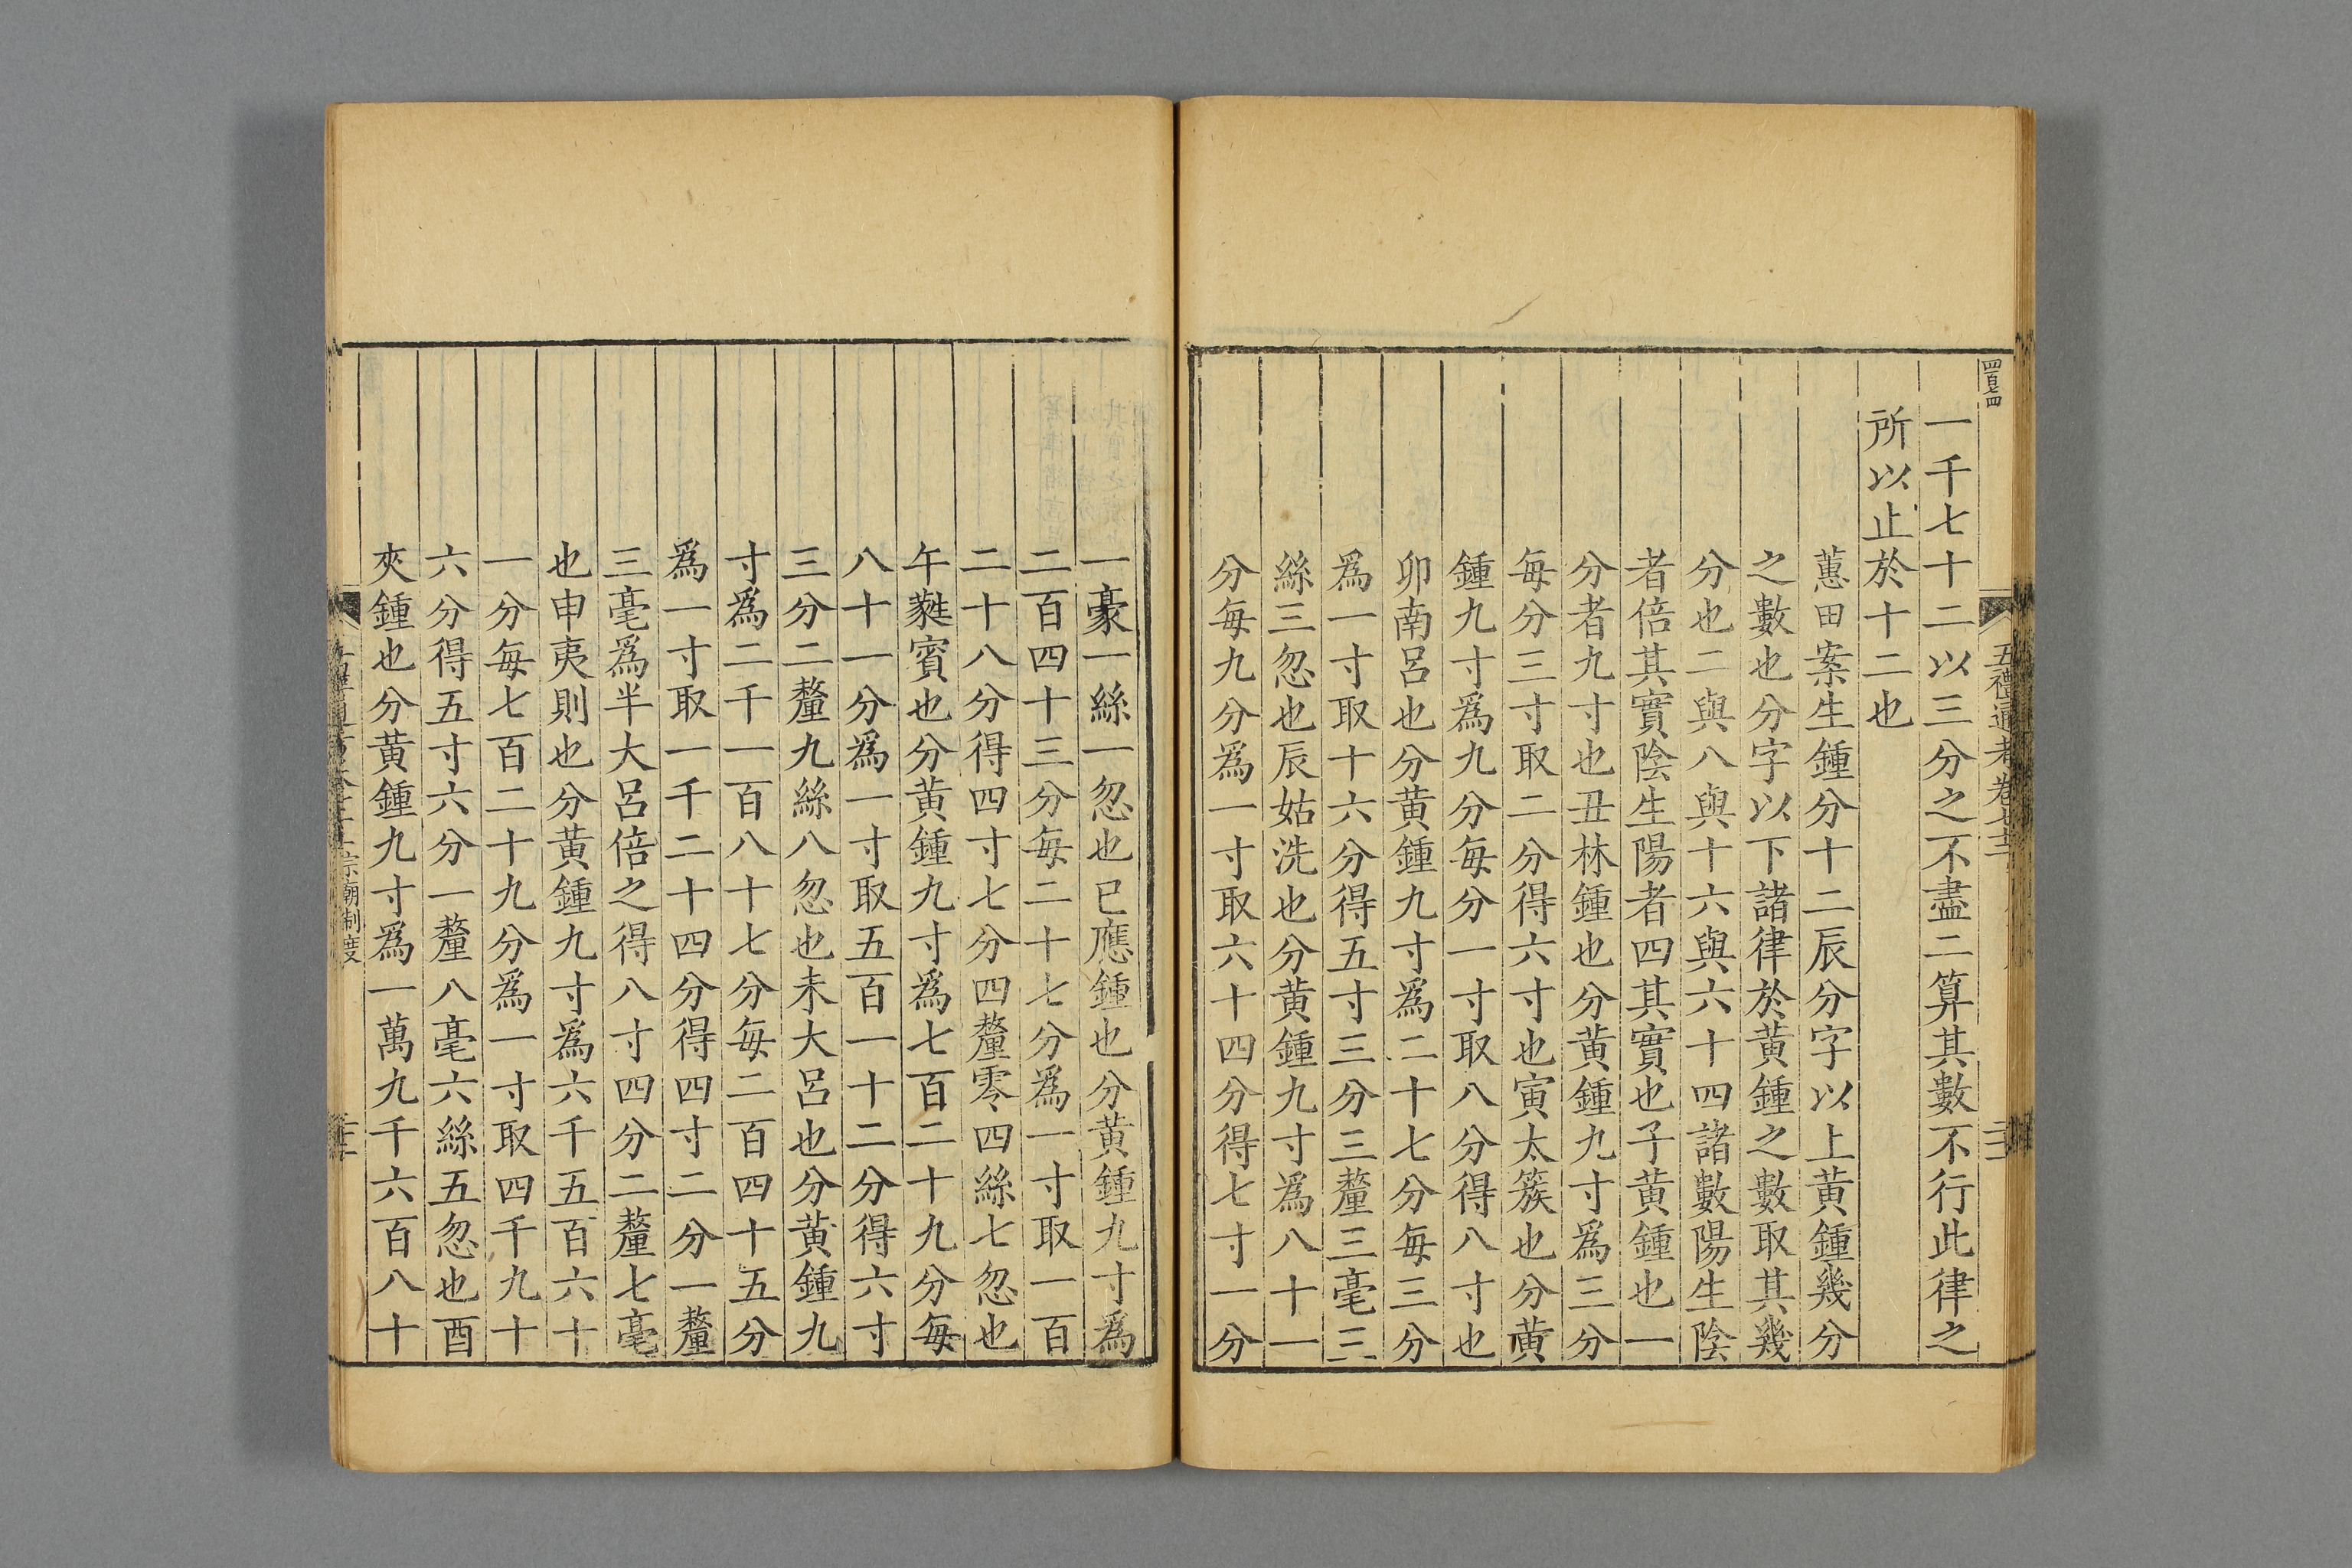 四百七四
五禮通考卷七十二
一千七十二以三分之不盡二算其數不行此律之
所以止於十二也
蕙田案生鍾分十二辰分字以上黃鍾幾分
之數也分字以下諸律於黃鍾之數取其幾
分也二與八與十六與六十四諸數陽生陰
者倍其實陰生陽者四其實也子黃鍾也一
分者九寸也丑林鍾也分黃鍾九寸爲三分
每分三寸取二分得六寸也寅太簇也分黃
鍾九寸爲九分每分一寸取八分得八寸也
卯南呂也分黃鍾九寸爲二十七分每三分
爲一寸取十六分得五寸三分三釐三毫三
絲三忽也辰姑洗也分黃鍾九寸爲八十一
分每九分爲一寸取六十四分得七寸一分
一豪一絲一忽也巳應鍾也分黃鍾九寸爲
二百四十三分每二十七分爲一寸取一百
二十八分得四寸七分四釐零四絲七忽也
午蕤賓也分黃鍾九寸爲七百二十九分每
八十一分爲一寸取五百一十二分得六寸
三分二釐九絲八忽也未大呂也分黃鍾九
寸爲二千一百八十七分每二百四十五分
爲一寸取一千二十四分得四寸二分一釐
三毫爲半大呂倍之得八寸四分二釐七毫
也申夷則也分黃鍾九寸爲六千五百六十
一分每七百二十九分爲一寸取四千九十
六分得五寸六分一釐八毫六絲五忽也酉
夾鍾也分黃鍾九寸爲一萬九千六百八十
宗廟制度